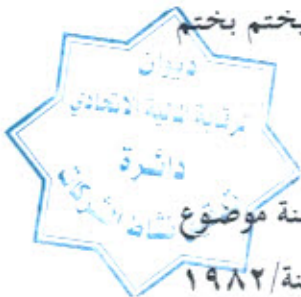 يختم بختم
ديوان
الرقابة المالية الاتحادي
دائرة
نشاط
نة موضوع
نة/١٩٨٢